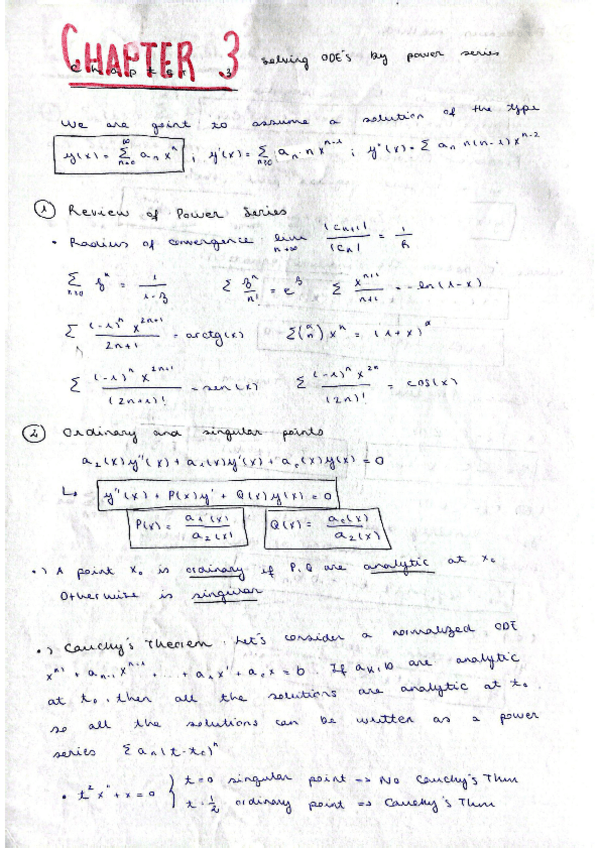 CHAPTER 3 Solving ODE's by power series
Chapter 3
We are goint to assume a solution of the type
y(x) = Σ_{n=0}^{∞} a_n x^n ; y'(x) = Σ_{n≥0} a_n · n x^{n-1} ; y''(x) = Σ a_n n(n-1) x^{n-2}
① Review of Power Series
• Radius of convergence lim_{n→∞} |c_{n+1}| / |c_n| = 1/R
Σ_{n≥0} z^n = 1/(1-z) Σ z^n/n! = e^z Σ x^{n+1}/(n+1) = -ln(1-x)
Σ (-1)^n x^{2n+1} / (2n+1) = arctg(x) Σ (α n) x^n = (1+x)^α
Σ (-1)^n x^{2n+1} / (2n+1)! = sen(x) Σ (-1)^n x^{2n} / (2n)! = cos(x)
② Ordinary and singular points
a_2(x)y''(x) + a_1(x)y'(x) + a_0(x)y(x) = 0
↳ y''(x) + P(x)y' + Q(x)y(x) = 0
P(x) = a_1(x) / a_2(x) Q(x) = a_0(x) / a_2(x)
•) A point x_0 is ordinary if P, Q are analytic at x_0
Otherwise is singular
•) Cauchy's Theorem. Let's consider a normalized ODE
x^{n)} + a_{n-1} x^{n-1} ... + a_1 x' + a_0 x = b. If a_k, b are analytic
at t_0, then all the solutions are analytic at t_0.
so all the solutions can be written as a power
series Σ a_n (t-t_0)^n
• t² x'' + x = 0 { t=0 singular point => No Cauchy's Thm
t = 1/2 ordinary point => Cauchy's Thm